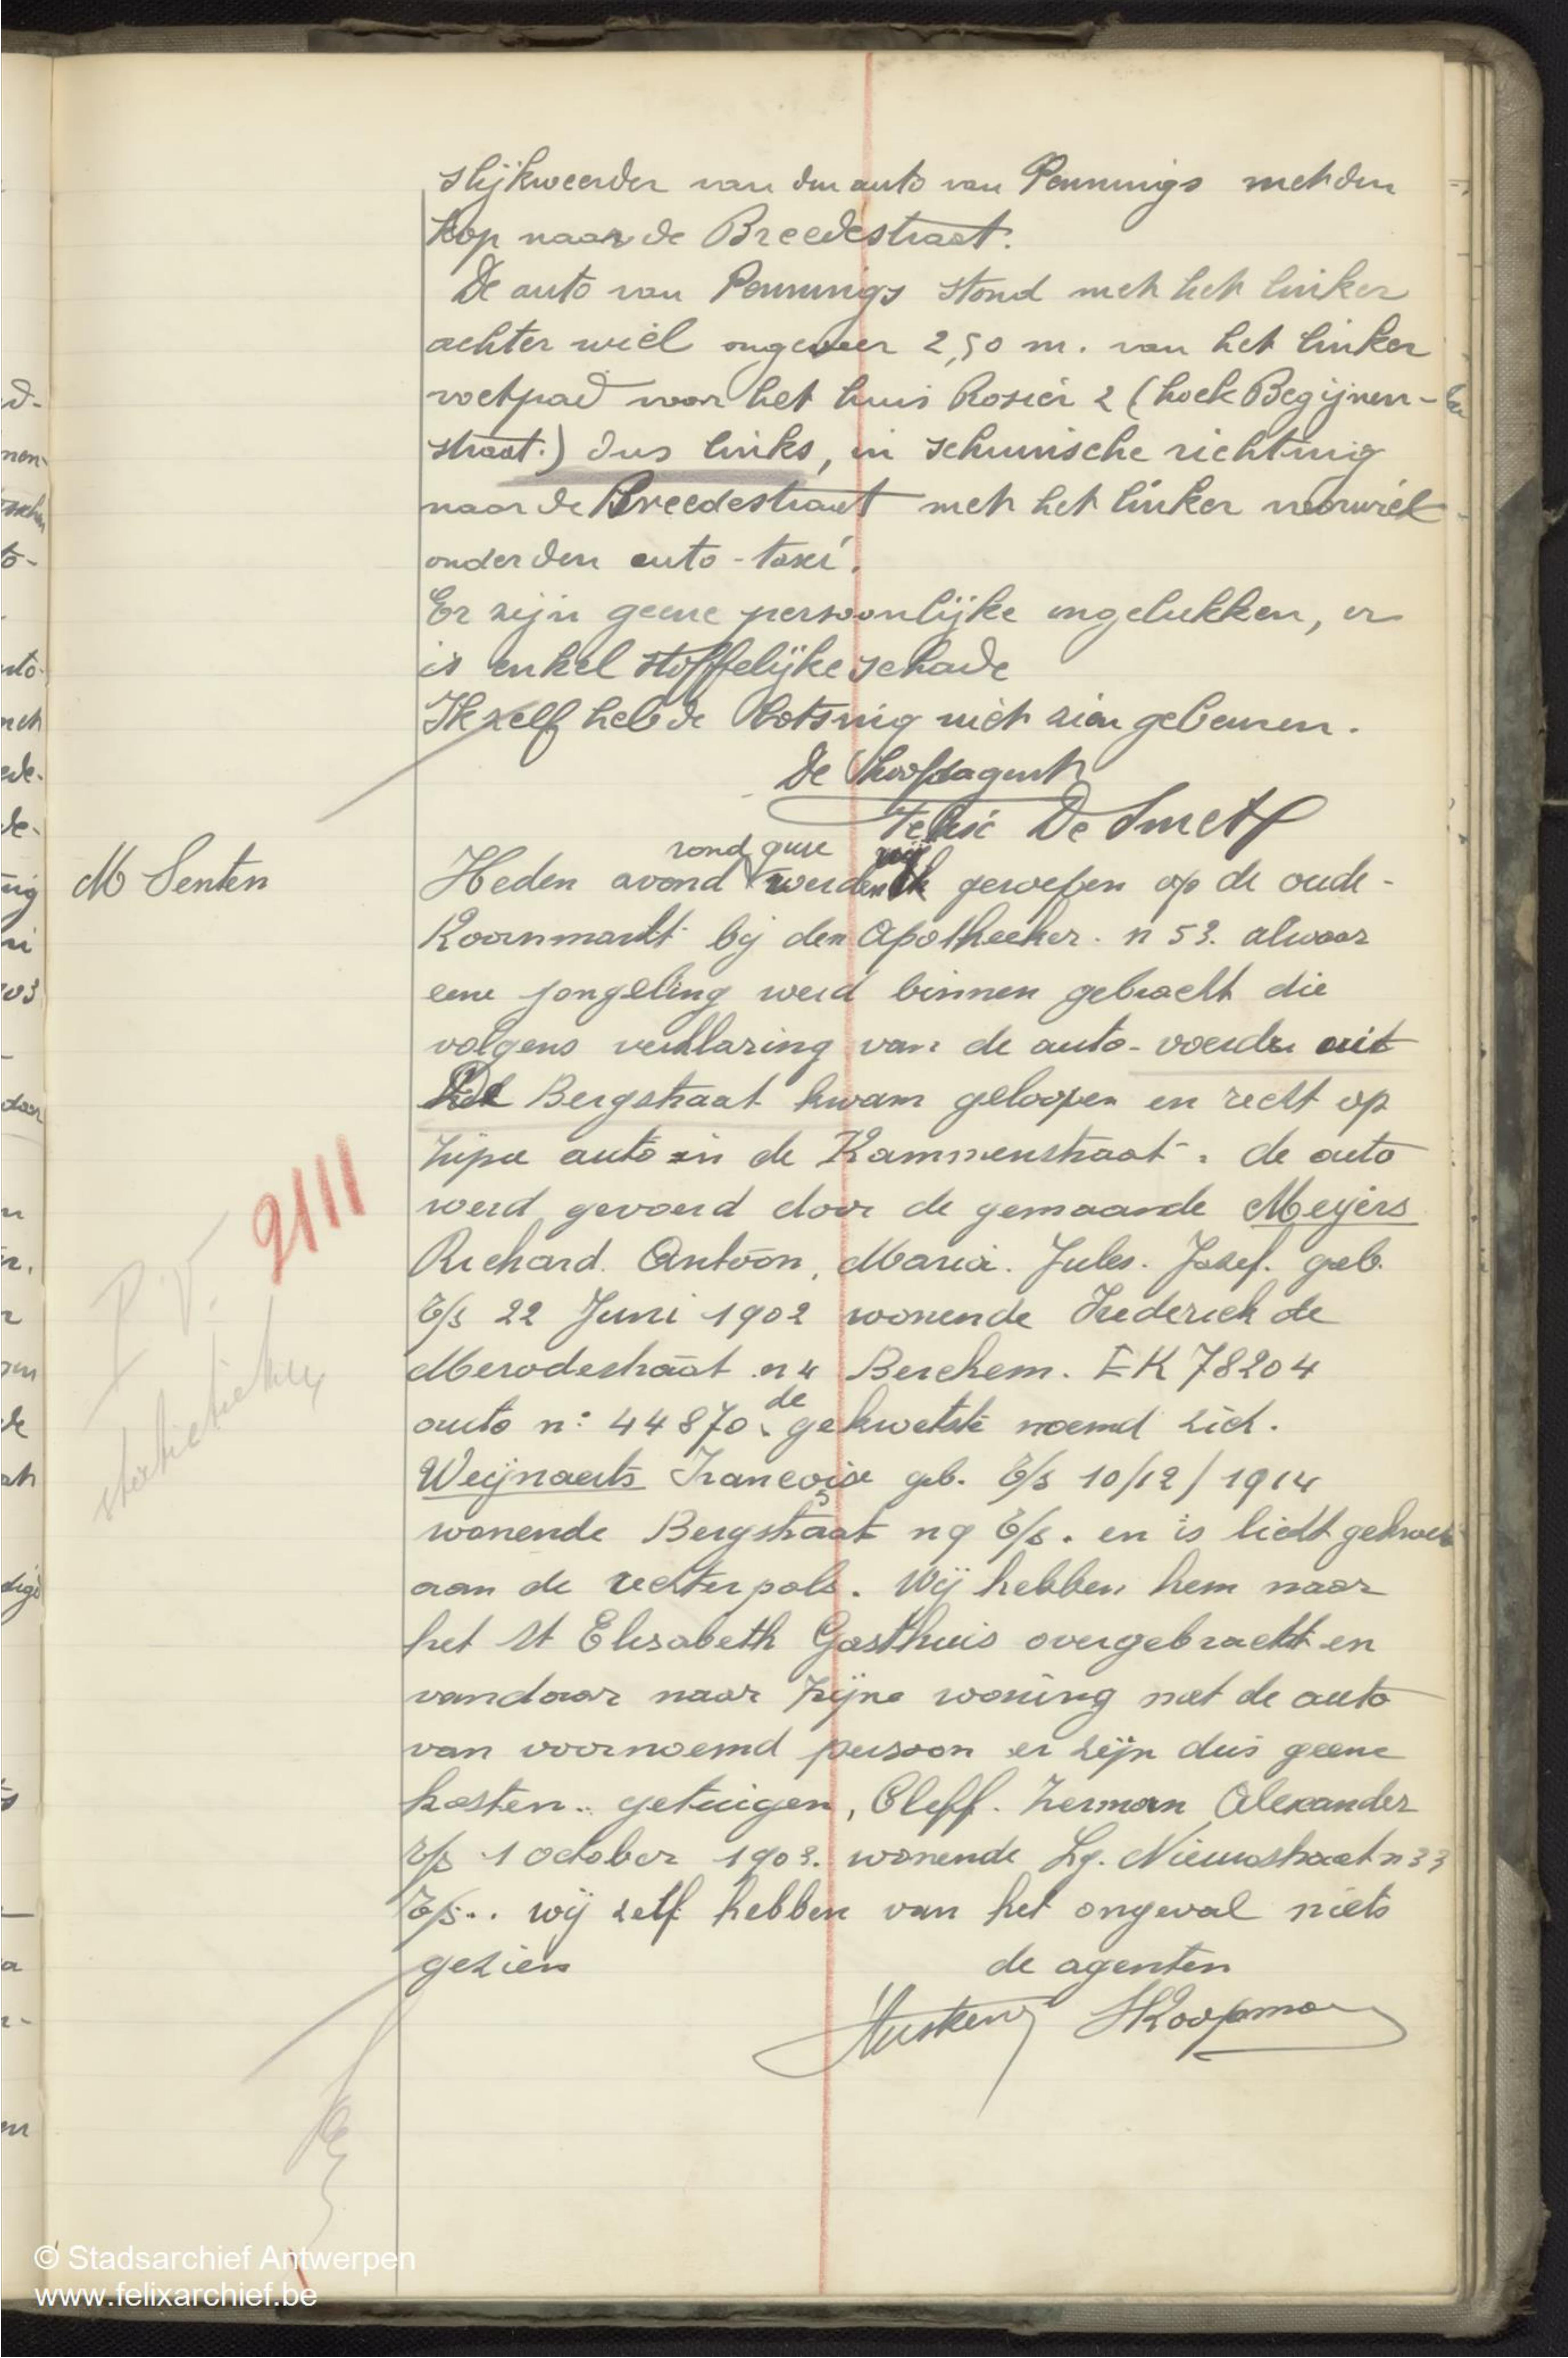 slijkweerder van den auto van Pennings met den
kop naar de Breedestraat.
De auto van Pennings stond met het linker
achter wiel ongeveer 2,50 m. van het linker
voetpad voor het huis Rosier 2 (hoek Begijnen-
straat.) dus links, in schuinsche richting
naar de Breedestraat met het linker voorwiel
onder den auto-taxi.
Er zijn geene persoonlijke ongelukken, er
is enkel stoffelijke schade
Ik zelf heb de botsing niet zien gebeuren.
De Hoofdagent
De Smet
M Senten
rond qure wij
Heden avond werden geroepen op de oude-
Koornmarkt bij den Apotheeker. n 53. alwaar
eene jongeling werd binnen gebracht die
volgens verklaring van de auto-voerder uit
de Bergstraat kwam geloopen en recht op
zijne auto in de Kammenstraat. de auto
werd gevoerd door de genaamde Meyers
Richard. Antoon, Maria. Jules. Josef. geb.
T/s 22 Juni 1902 wonende Frederick de
Merodestraat n 4 Berchem. EK 78204
auto n: 44870. de gekwetste noemd zich.
Weijnaerts Francoise geb. T/s 10/12/1914
wonende Bergstraat n 9 T/s. en is licht gekwets
aan de rechter pols. Wij hebben hem naar
het St Elisabeth Gasthuis overgebracht en
vandaar naar zijne woning met de auto
van voornoemd persoon er zijn dus geene
kosten.. getuigen, Cleff. Herman Alexander
T/s 1 October 1903. wonende Lg. Nieuwstraat n 33
T/s.. wij zelf hebben van het ongeval niets
gezien
de agenten
Koopman
2111
P.V.
© Stadsarchief Antwerpen
www.felixarchief.be